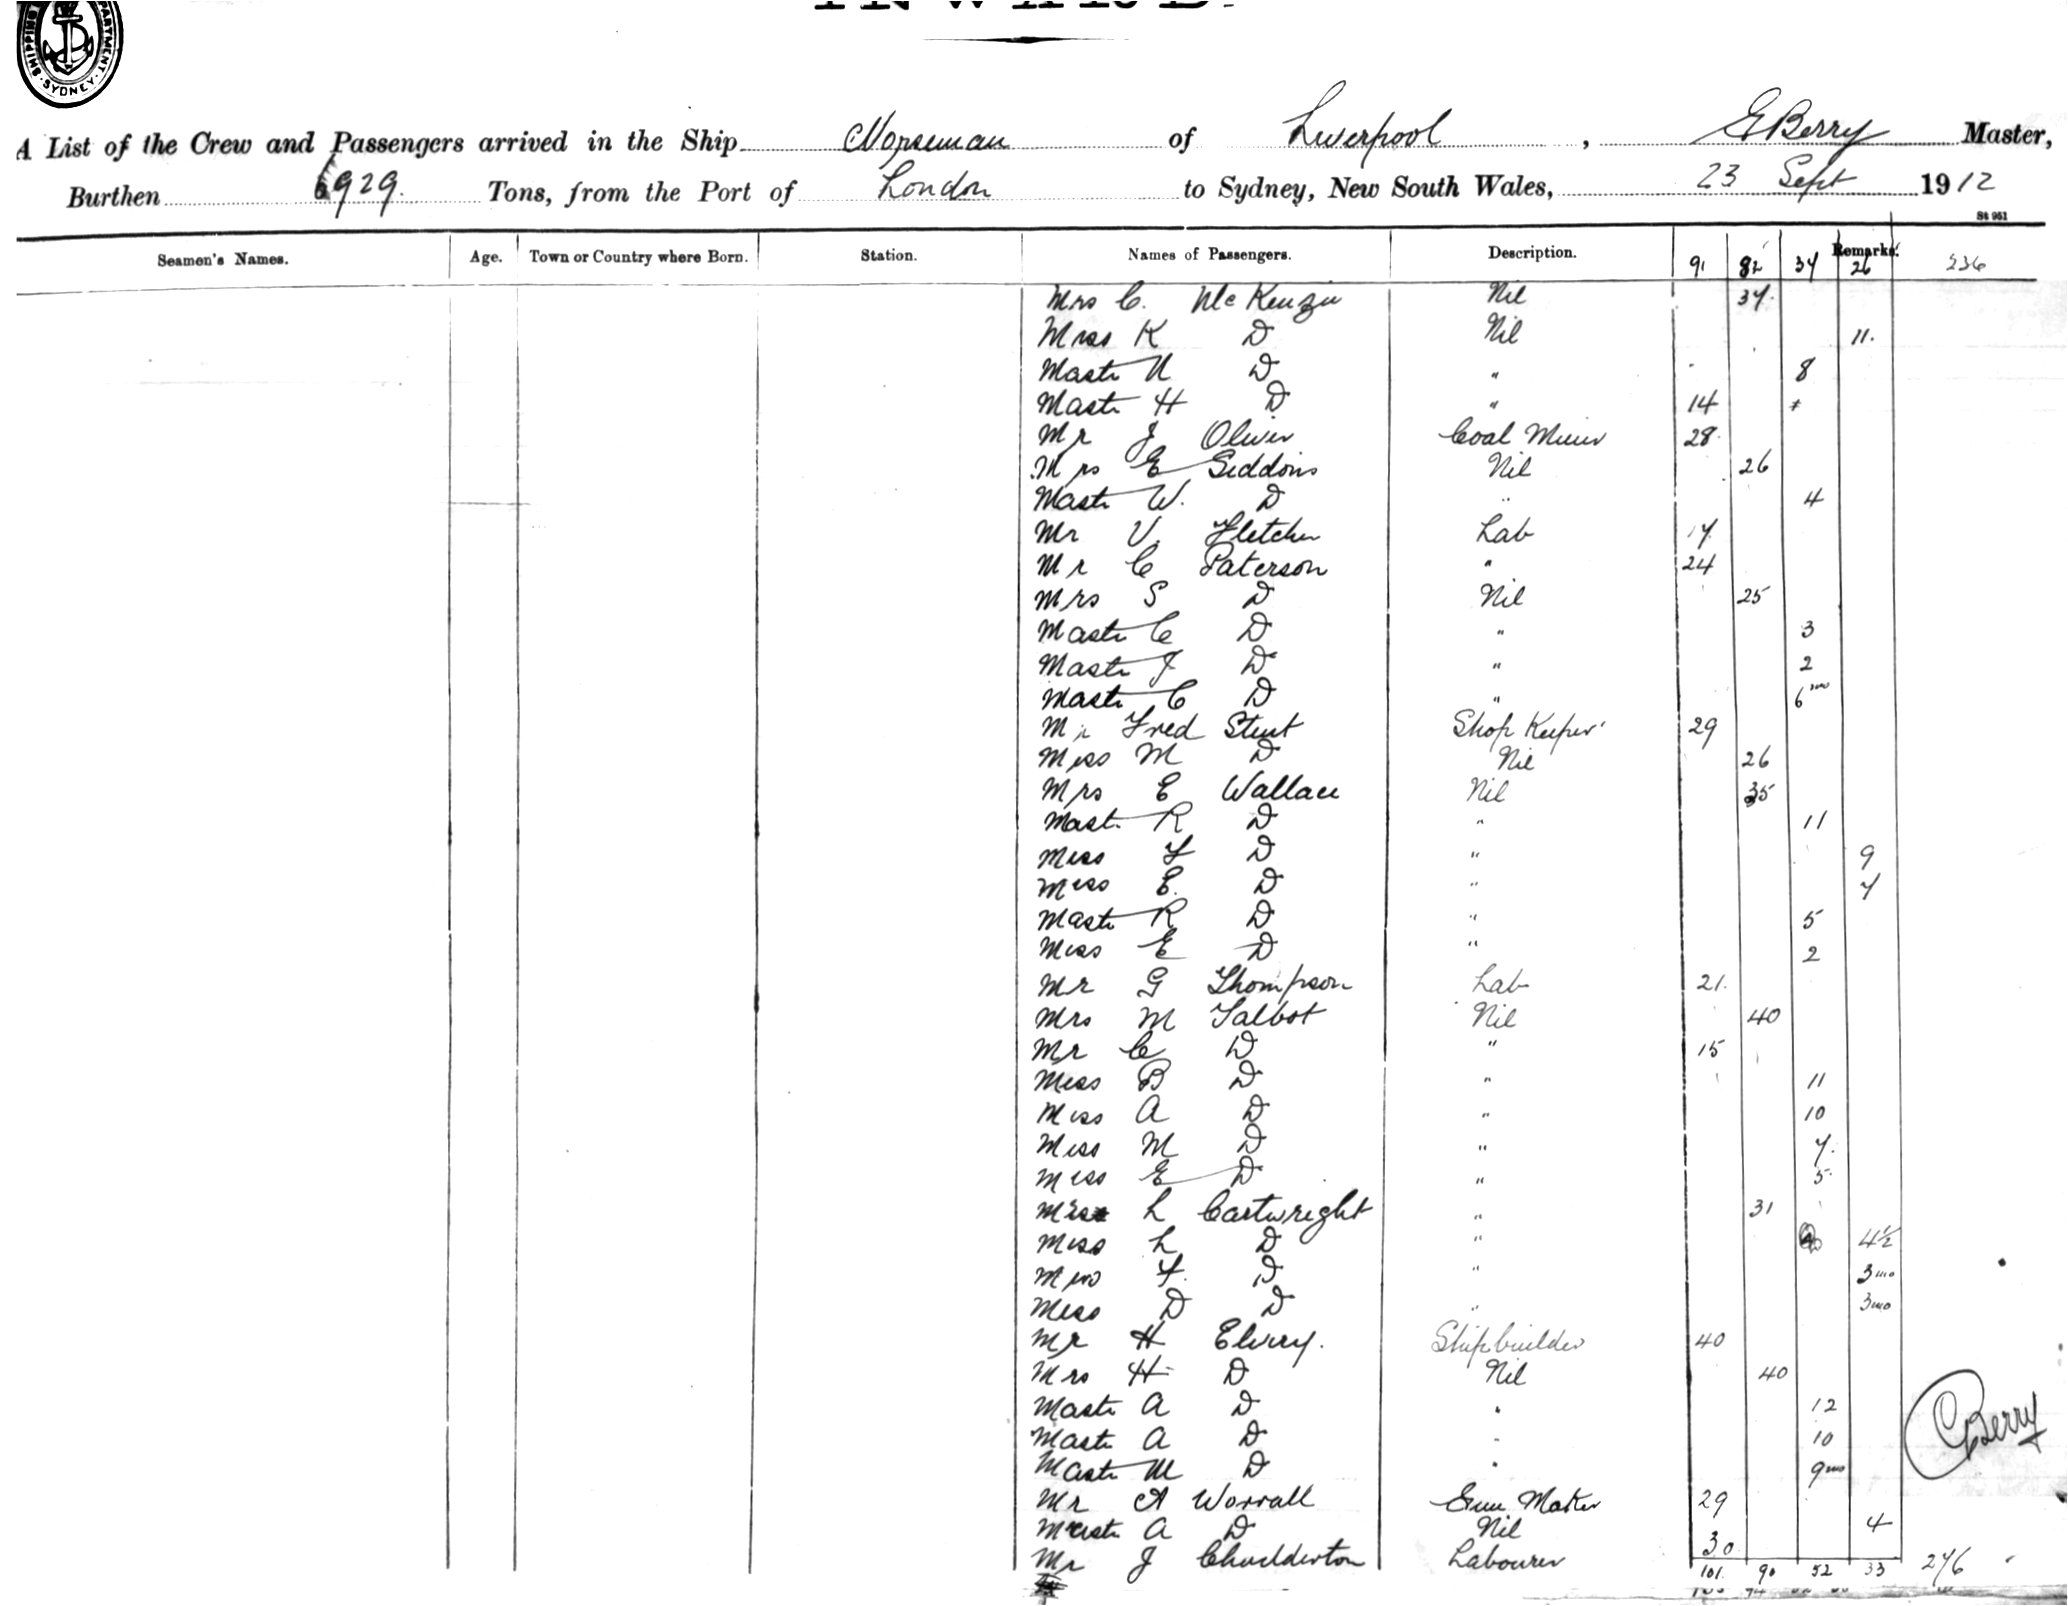 SHIPPING DEPARTMENT. SYDNEY
INWARD.
A List of the Crew and Passengers arrived in the Ship Norseman of Liverpool, E Berry Master,
Burthen 6929. Tons, from the Port of London to Sydney, New South Wales, 23 Sept 1912
St 951
Seamen's Names. Age. Town or Country where Born. Station. Names of Passengers. Description. Remarks.
91 82 34 26 236
Mrs C. McKenzie Nil 37.
Miss K D Nil 11.
Mastr N D " 8
Mastr H D " 14
Mr J Oliver Coal Miner 28.
Mrs E Siddons Nil 26
Mastr W. D " 4
Mr V. Fletcher Lab 17.
Mr C Paterson " 24
Mrs S D Nil 25
Mastr C D " 3
Mastr J D " 2
Mastr C D " 6 mo
Mr Fred Stent Shop Keeper 29
Miss M D Nil 26
Mrs E Wallace Nil 35
Mastr R D " 11
Miss F D " 9
Miss E. D " 7
Mastr R D " 5
Miss E D " 2
Mr G Thompson Lab 21.
Mrs M Talbot Nil 40
Mr C D " 15
Miss B D " 11
Miss A D " 10
Miss M D " 7.
Miss E D " 5.
Mrs L Cartwright " 31
Miss L D " 4½
Miss F. D " 3 mo
Miss D D " 3 mo
Mr H Elvery. Shipbuilder 40
Mrs H D Nil 40
Mastr A D " 12
Mastr A D " 10
Mastr M D " 9 mo
CBerry
Mr A Worrall Maker 29
Mastr A D Nil 4
Mr J Chadderton Labourer 30
101. 90 52 33 276